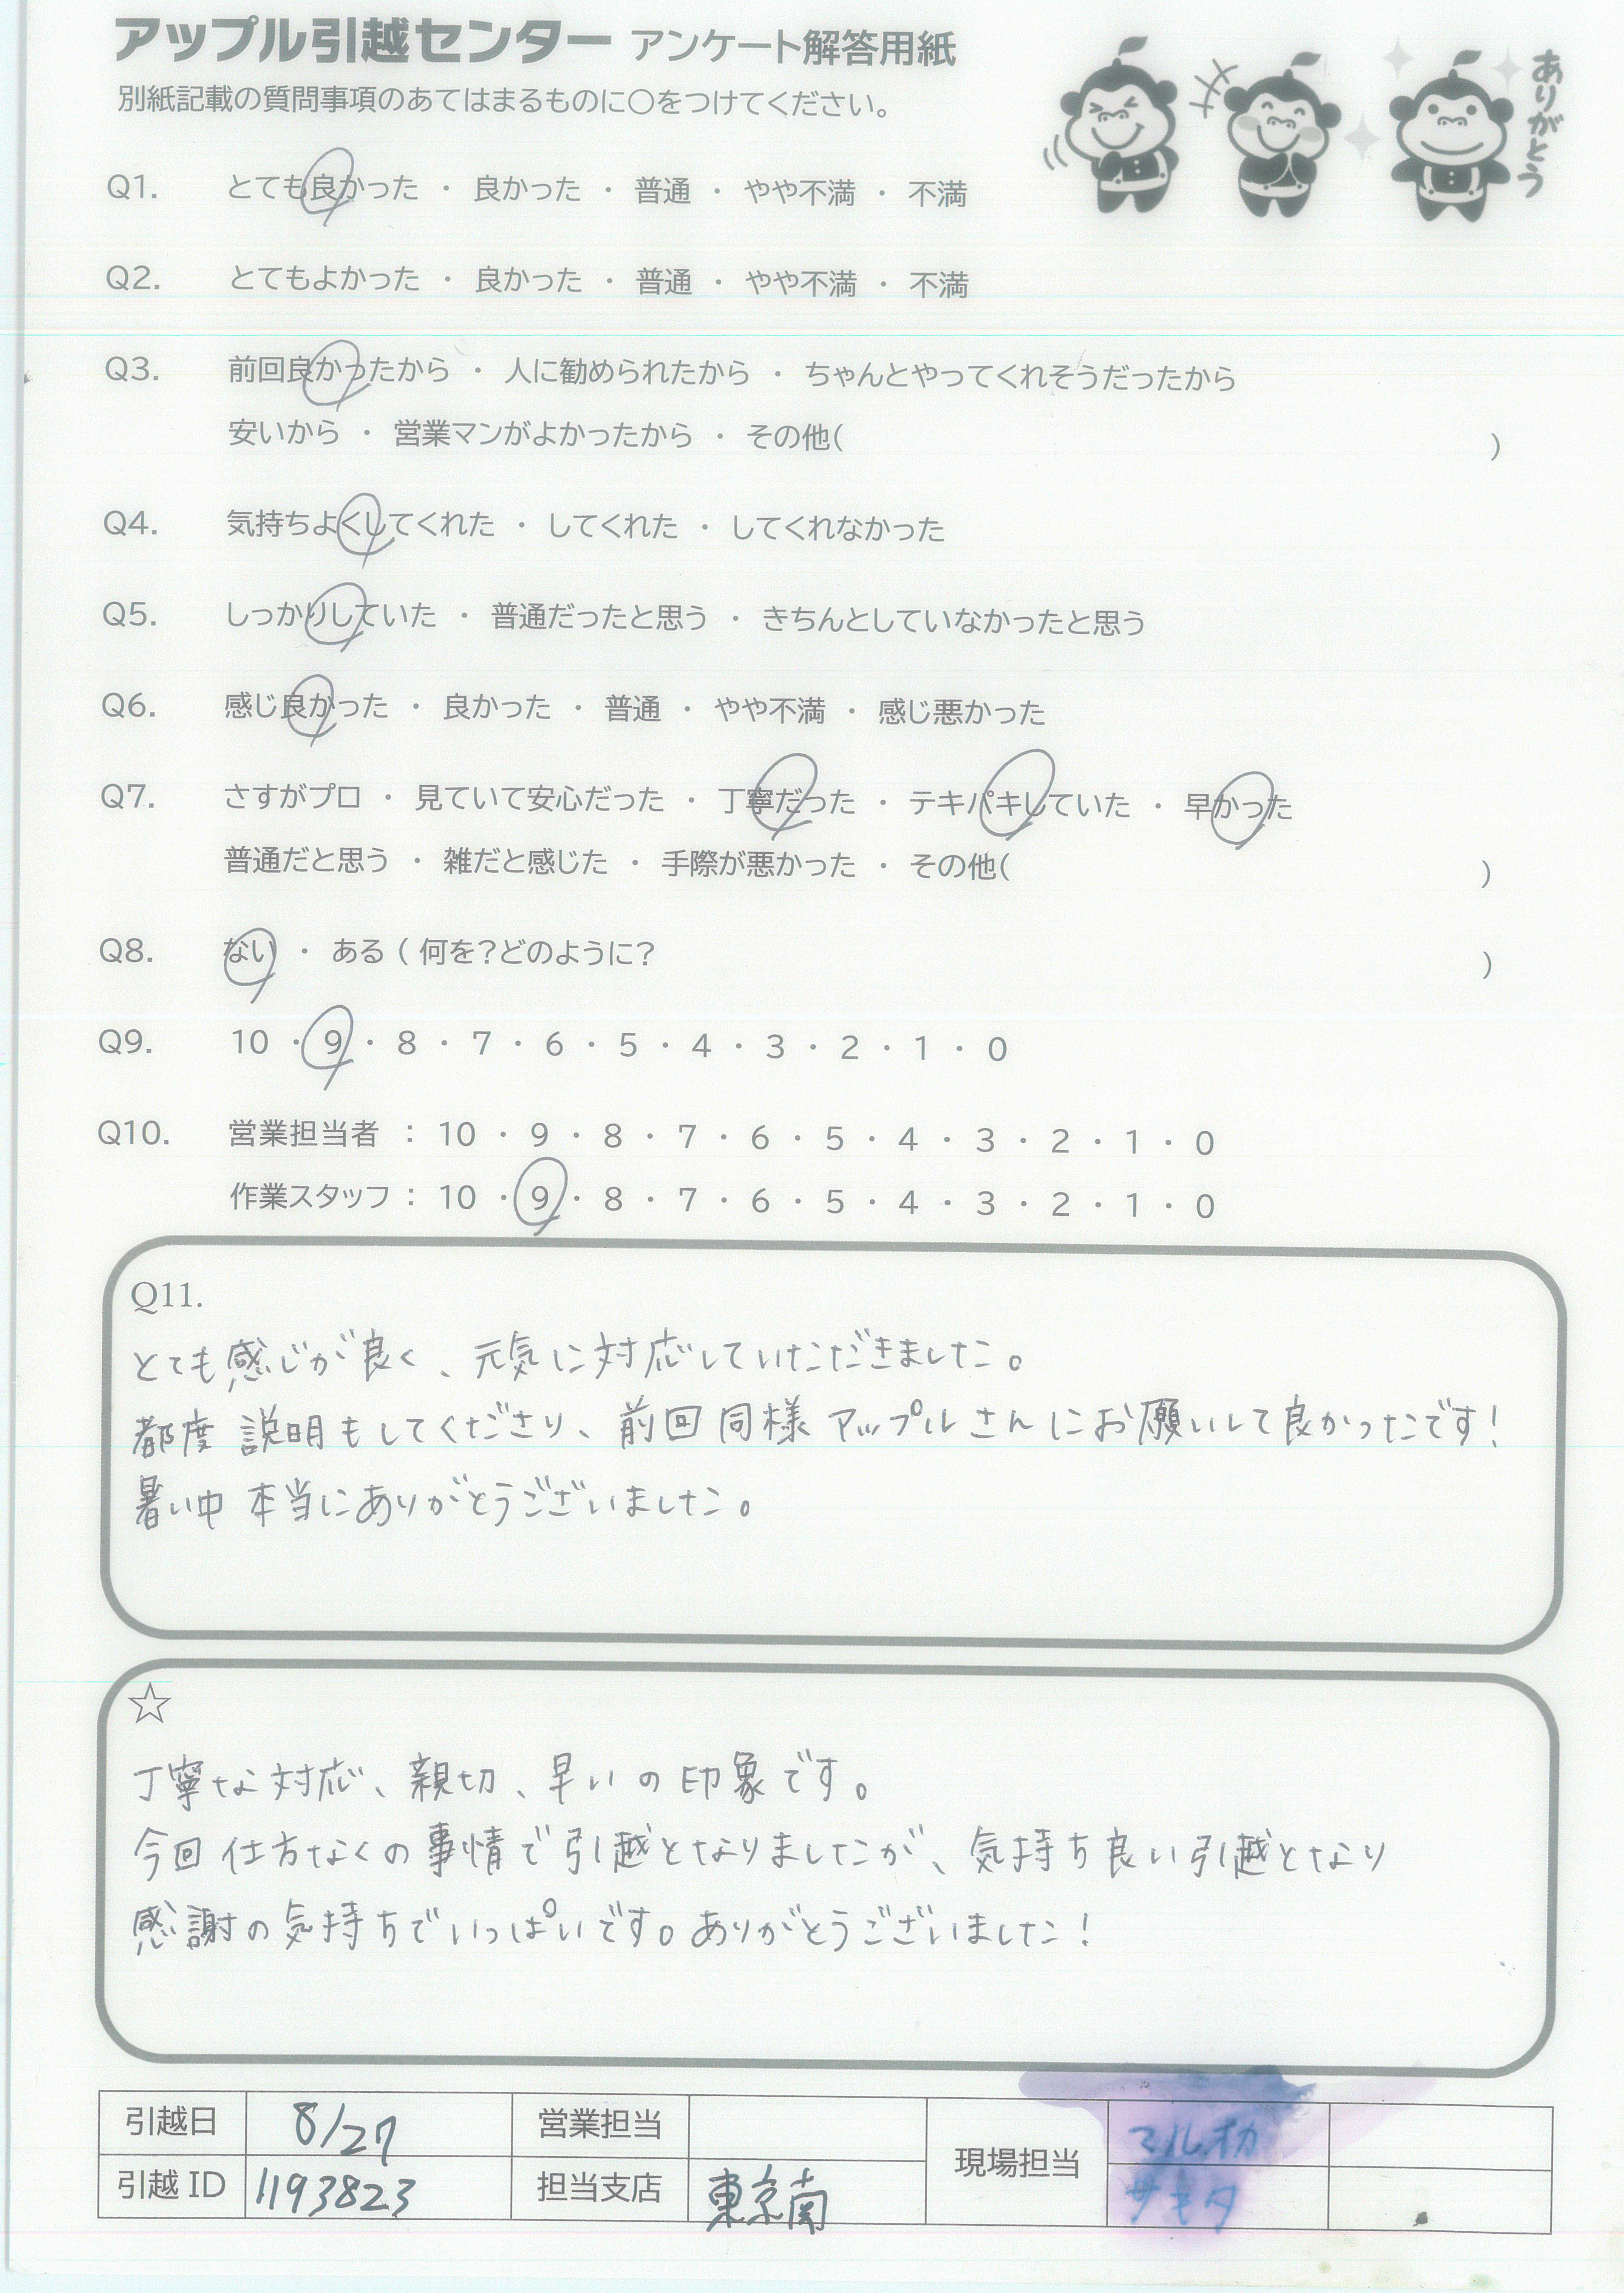 アップル引越センター アンケート解答用紙
ありがとう
別紙記載の質問事項のあてはまるものに〇をつけてください。
Q1. とても良かった ・ 良かった ・ 普通 ・ やや不満 ・ 不満
Q2. とてもよかった ・ 良かった ・ 普通 ・ やや不満 ・ 不満
Q3. 前回良かったから ・ 人に勧められたから ・ ちゃんとやってくれそうだったから
安いから ・ 営業マンがよかったから ・ その他( )
Q4. 気持ちよくしてくれた ・ してくれた ・ してくれなかった
Q5. しっかりしていた ・ 普通だったと思う ・ きちんとしていなかったと思う
Q6. 感じ良かった ・ 良かった ・ 普通 ・ やや不満 ・ 感じ悪かった
Q7. さすがプロ ・ 見ていて安心だった ・ 丁寧だった ・ テキパキしていた ・ 早かった
普通だと思う ・ 雑だと感じた ・ 手際が悪かった ・ その他( )
Q8. ない ・ ある ( 何を?どのように? )
Q9. 10 ・ 9 ・ 8 ・ 7 ・ 6 ・ 5 ・ 4 ・ 3 ・ 2 ・ 1 ・ 0
Q10. 営業担当者 : 10 ・ 9 ・ 8 ・ 7 ・ 6 ・ 5 ・ 4 ・ 3 ・ 2 ・ 1 ・ 0
作業スタッフ : 10 ・ 9 ・ 8 ・ 7 ・ 6 ・ 5 ・ 4 ・ 3 ・ 2 ・ 1 ・ 0
Q11.
とても感じが良く、元気に対応していただきました。
都度説明もしてくださり、前回同様アップルさんにお願いして良かったです!
暑い中 本当にありがとうございました。
☆
丁寧な対応、親切、早いの印象です。
今回仕方なくの事情で引越となりましたが、気持ち良い引越となり
感謝の気持ちでいっぱいです。ありがとうございました!
引越日 8/27 営業担当 現場担当 マルオカ
引越 ID 1193823 担当支店 東京南 サキタ